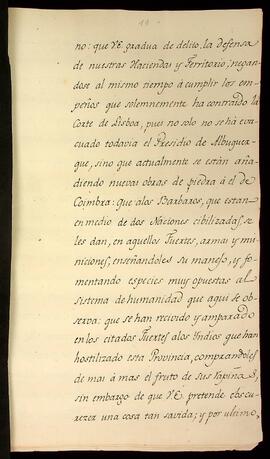 no: que V.E. gradua de delito, la defensa
de nuestras Haciendas y Territorio, negan-
dose al mismo tiempo á cumplir los em-
peños que solemnemente ha contraido la
Corte de Lisboa, pues no solo no se há eva-
cuado todavia el Presidio de Albuquer-
que, sino que actualmente se están aña-
diendo nuevas obras de piedra á el de
Coimbra: que alos Barbaros, que estan
en medio de dos Naciones cibilizadas, se
les dan, en aquellos Fuertes, armas y mu-
niciones, enseñandoles su manejo, y fo-
mentando especies muy opuestas al
sistema de humanidad que aqui se ob-
serva: que se han recivido y amparado
en los citados Fuertes alos Yndios que han
hostilizado esta Provincia, comprandoles
de mas á mas el fruto de sus rapiñas,
sin embargo de que V.E. pretende obscu-
recer una cosa tan savida; y por ultimo,